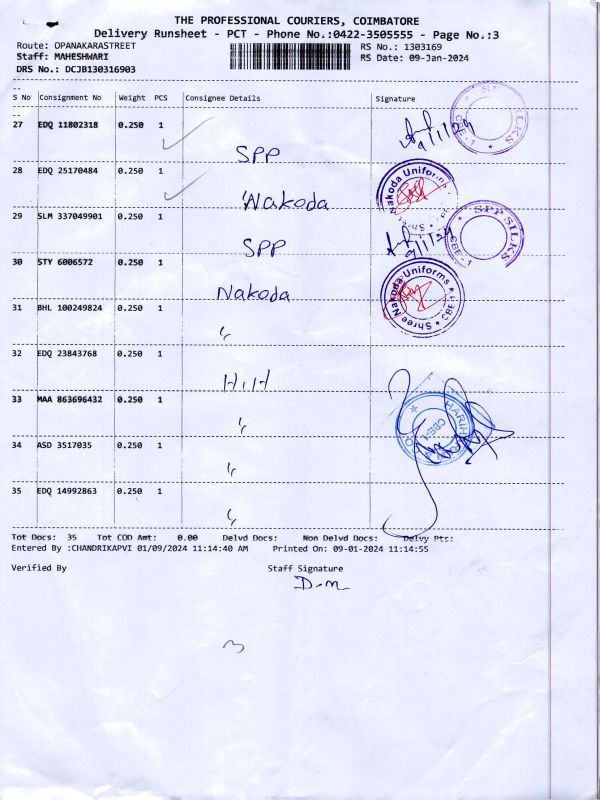 THE PROFESSIONAL COURIERS, COIMBATORE
Delivery Runsheet - PCT - Phone No.:0422-3505555 - Page No.:3
Route: OPANAKARASTREET RS No.: 1303169
Staff: MAHESHWARI RS Date: 09-Jan-2024
DRS No.: DCJB130316903
S No Consignment No Weight PCS Consignee Details Signature
27 EDQ 11802318 0.250 1 SPP 9/1/24
SPP SILKS CBE-1
28 EDQ 25170484 0.250 1 Nakoda
Shree Nakoda Uniforms
29 SLM 337049901 0.250 1 SPP 9/1/24
SPP SILKS CBE-1
30 STY 6006572 0.250 1 Nakoda
Shree Nakoda Uniforms CBE-1
31 BHL 100249824 0.250 1 "
32 EDQ 23843768 0.250 1
33 MAA 863696432 0.250 1 "
CBE-1
34 ASD 3517035 0.250 1 "
35 EDQ 14992863 0.250 1 "
Tot Docs: 35 Tot COD Amt: 0.00 Delvd Docs: Non Delvd Docs: Delvy Pts:
Entered By :CHANDRIKAPVI 01/09/2024 11:14:40 AM Printed On: 09-01-2024 11:14:55
Verified By Staff Signature